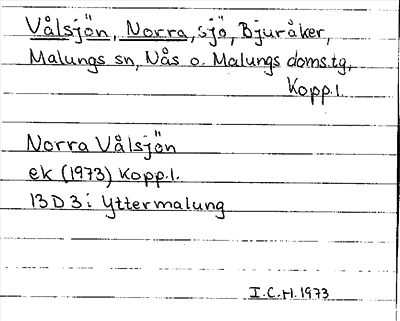 Vålsjön, Norra, sjö, Bjuråker,
Malungs sn, Nås o. Malungs doms.tg,
Kopp.l.
Norra Vålsjön
ek (1973) Kopp.l.
13 D 3 i Yttermalung
I.C.H. 1973